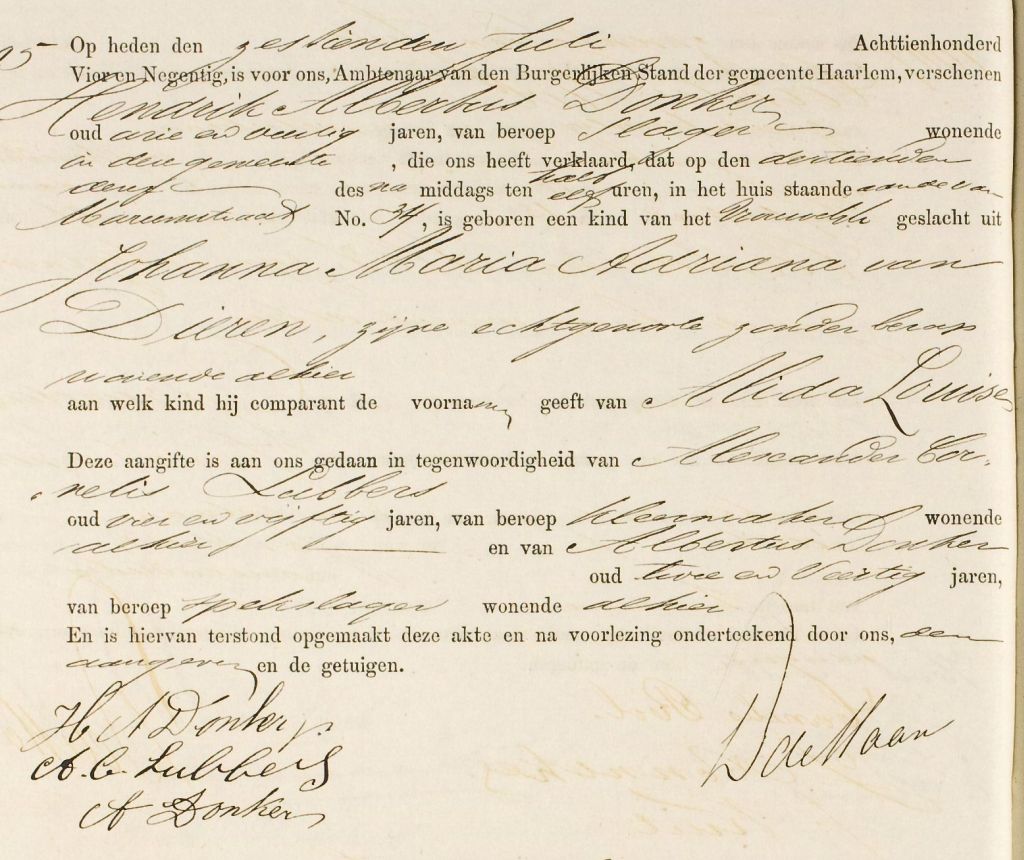 Op heden den zestienden Juli Achttienhonderd
Vier en Negentig, is voor ons, Ambtenaar van den Burgerlijken Stand der gemeente Haarlem, verschenen
Hendrik Albertus Donker
oud drie en veertig jaren, van beroep Slager wonende
in deze gemeente, die ons heeft verklaard, dat op den dertienden
dezer des na middags ten half elf uren, in het huis staande aan de van
Marumstraat No. 34, is geboren een kind van het Vrouwelijk geslacht uit
Johanna Maria Adriana van
Dieren, zijne echtgenoote zonder beroep
wonende alhier
aan welk kind hij comparant de voornamen geeft van Alida Louise
Deze aangifte is aan ons gedaan in tegenwoordigheid van Alexander Cor-
nelis Lubbers
oud vier en vijftig jaren, van beroep kleermaker wonende
alhier en van Albertus Donker
oud twee en Veertig jaren,
van beroep spekslager wonende alhier
En is hiervan terstond opgemaakt deze akte en na voorlezing onderteekend door ons, den
aangever en de getuigen.
H A Donker
A. C. Lubbers
A Donker
D de Haan